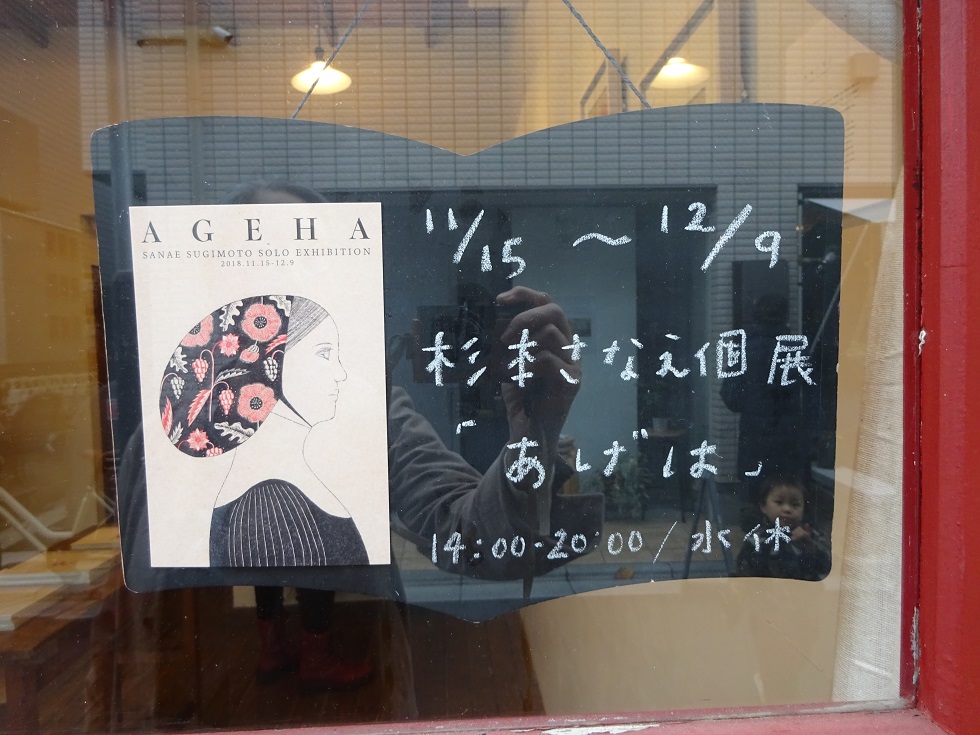 AGEHA
SANAE SUGIMOTO SOLO EXHIBITION
2018.11.15-12.9
11/15 〜 12/9
杉本さなえ個展
「あげは」
14:00-20:00/水休